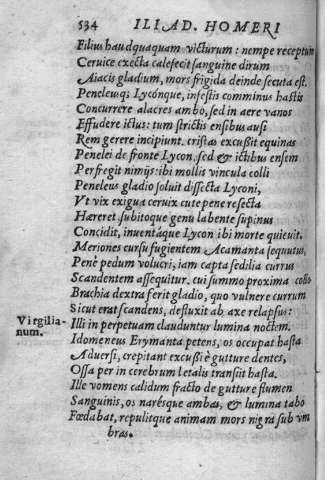 534 ILIAD. HOMERI
Filius haudquaquam victurum: nempe receptum
Ceruice execta calefecit sanguine dirum
Aiacis gladium, mors frigida deinde secuta est.
Peneleusq; Lyconque, infestis comminus hastis
Concurrere alacres ambo, sed in aere vanos
Effudere ictus: tum strictis ensibus ausi
Rem gerere incipiunt. cristas excussit equinas
Penelei de fronte Lycon, sed & ictibus ensem
Perfregit nimijs: ibi mollis vincula colli
Peneleus gladio soluit dissecta Lyconi,
Vt vix exigua ceruix cute pene resecta
Hæreret. subitoque genu labente supinus
Concidit, inuentáque Lycon ibi morte quieuit.
Meriones cursu fugientem Acamanta sequutus,
Penè pedum volucri, iam capta sedilia currus
Scandentem assequitur. cui summo proxima collo
Brachia dextra ferit gladio, quo vulnere currum
Sicut erat scandens, defluxit ab axe relapsus:
Virgilia-
num.
Illi in perpetuam clauduntur lumina noctem.
Idomeneus Erymanta petens, os occupat hasta
Aduersi, crepitant excussi è gutture dentes,
Ossa per in cerebrum letalis transiit hasta.
Ille vomens calidum fracto de gutture flumen
Sanguinis, os narésque ambas, & lumina tabo
Fœdabat, repulitque animam mors nigra sub vm
bras.